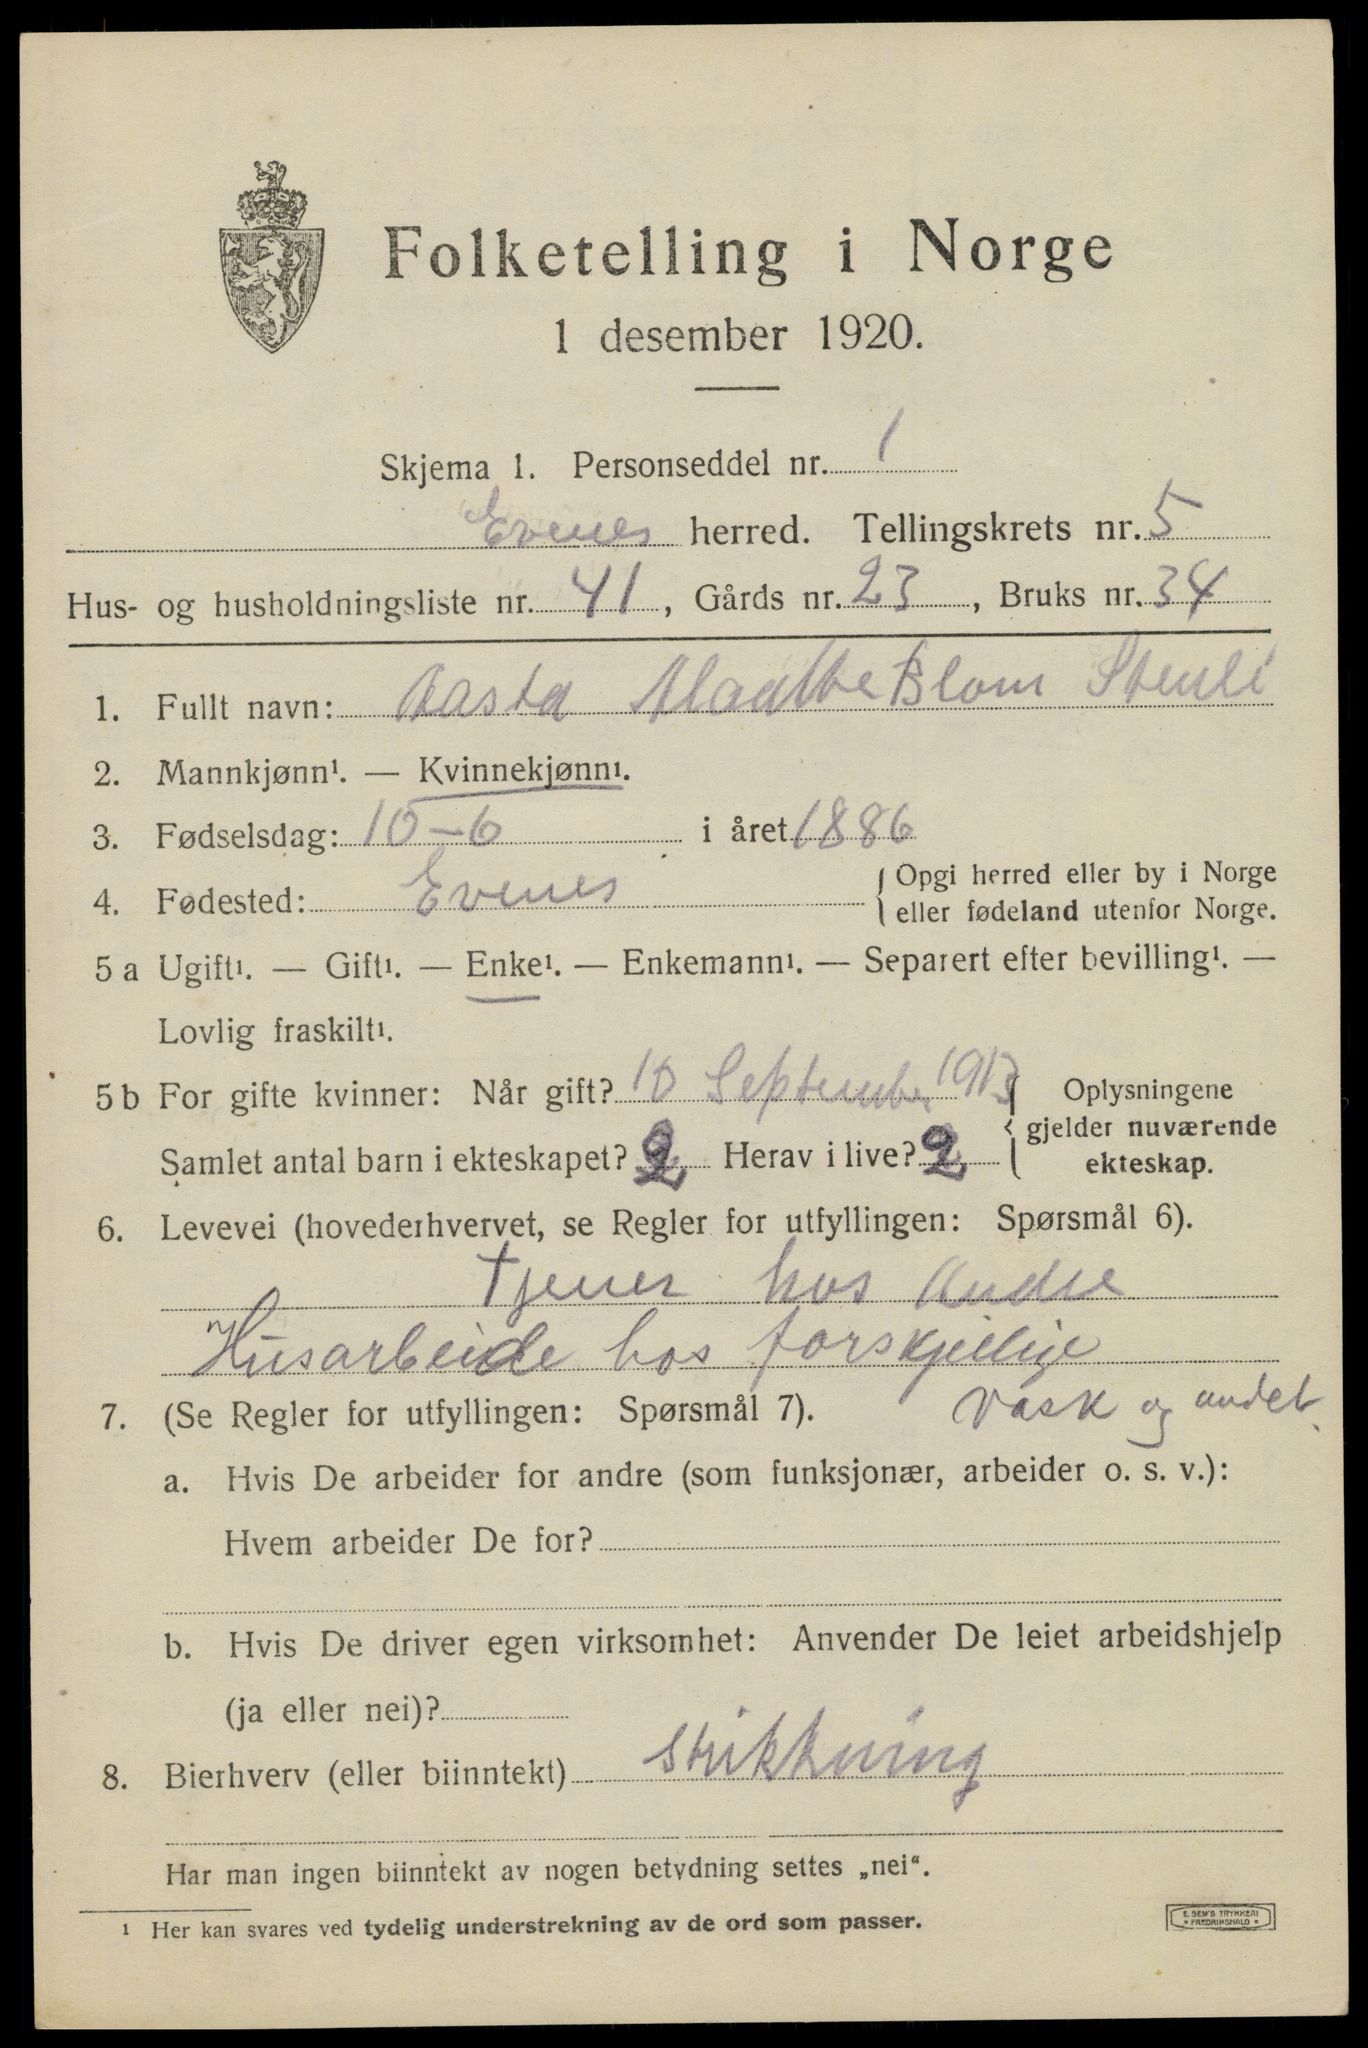 Folketelling i Norge
1 desember 1920.
Skjema 1. Personseddel nr. 1
Evenes herred. Tellingskrets nr. 5
Hus- og husholdningsliste nr. 41, Gårds nr. 23, Bruks nr. 34
1. Fullt navn: Aasta Blom
2. Mannkjønn¹. — Kvinnekjønn¹.
3. Fødselsdag: 10-6 i året 1886
4. Fødested: Evenes { Opgi herred eller by i Norge
eller fødeland utenfor Norge.
5 a Ugift¹. — Gift¹. — Enke¹. — Enkemann¹. — Separert efter bevilling¹. —
Lovlig fraskilt¹.
5 b For gifte kvinner: Når gift? 10 September 1913 { Oplysningene
Samlet antal barn i ekteskapet? 2 Herav i live? 2 gjelder nuværende
ekteskap.
6. Levevei (hovederhvervet, se Regler for utfyllingen: Spørsmål 6).
tjener hos Andre
Husarbeide hos forskjellige
7. (Se Regler for utfyllingen: Spørsmål 7). vask og andet.
a. Hvis De arbeider for andre (som funksjonær, arbeider o. s. v.):
Hvem arbeider De for?
b. Hvis De driver egen virksomhet: Anvender De leiet arbeidshjelp
(ja eller nei)?
8. Bierhverv (eller biinntekt) strikkning
Har man ingen biinntekt av nogen betydning settes „nei“.
¹ Her kan svares ved tydelig understrekning av de ord som passer.
E. SEM'S TRYKKERI
* FREDRIKSHALD *